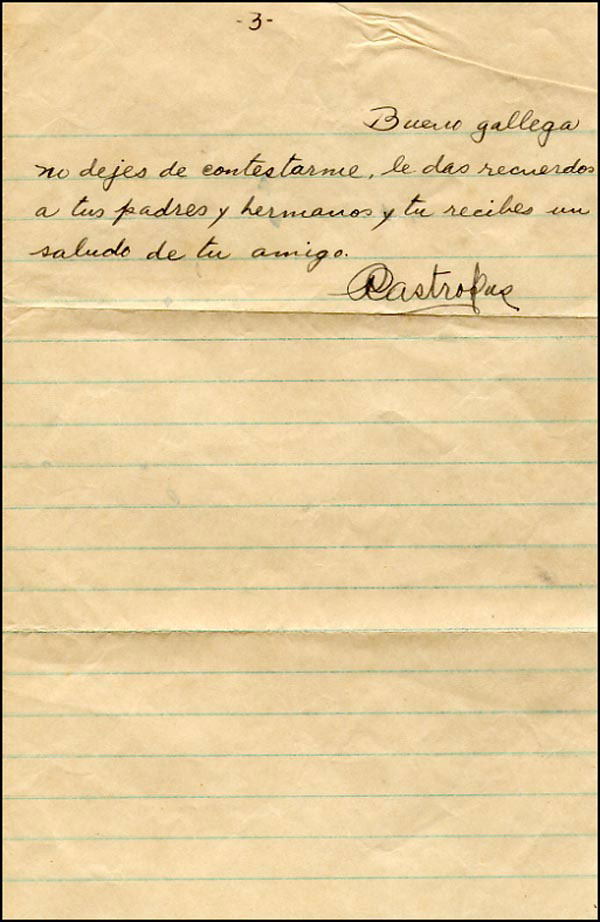 -3-
Bueno gallega
no dejes de contestarme, le das recuerdos
a tus padres y hermanos y tu recibes un
saludo de tu amigo.